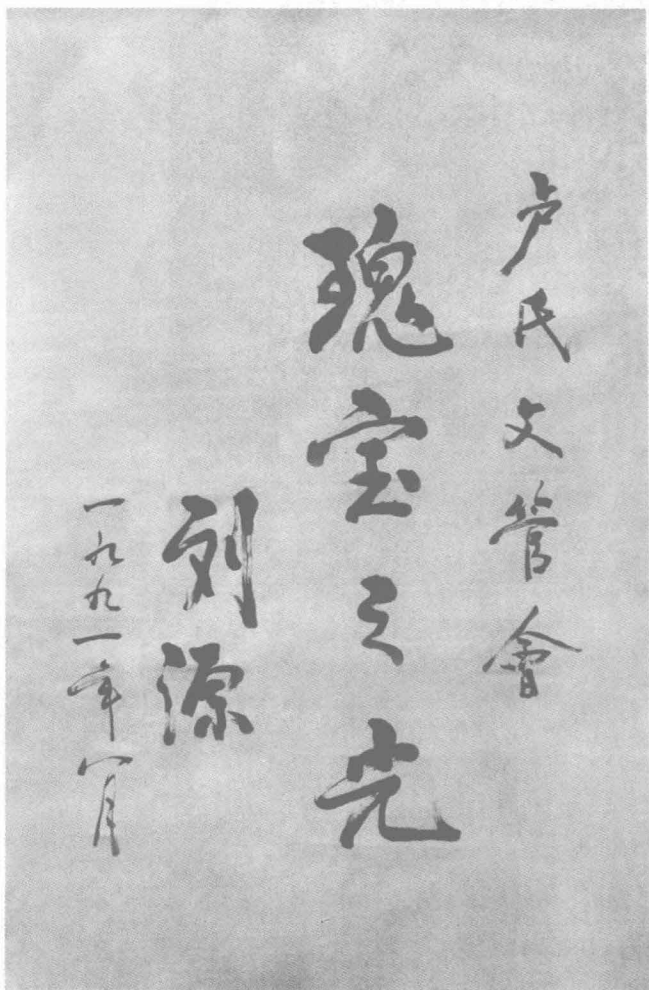 卢氏文管會
瑰宝之光
刘源
一九九一年八月